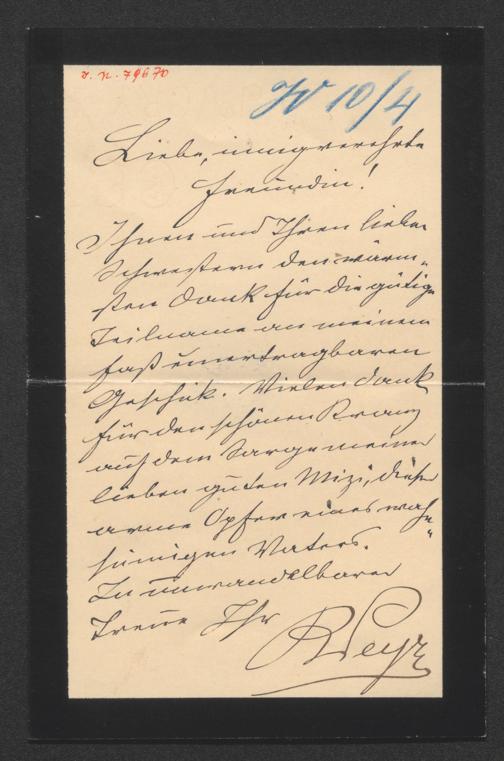 J. N. 79670
IV 10/4
Liebe, innigverehrte
Freundin!
Ihnen und Ihren lieben
Schwestern den wärm-
sten Dank für die gütige
Teilname an meinem
fast unertragbaren
Geschik. Vielen Dank
für den schönen Kranz
auf dem Sarge meiner
lieben guten Mizi, dieser
arme Opfer eines wahn-
sinnigen Vaters.
In unwandelbarer
Treue Ihr
RWeyr